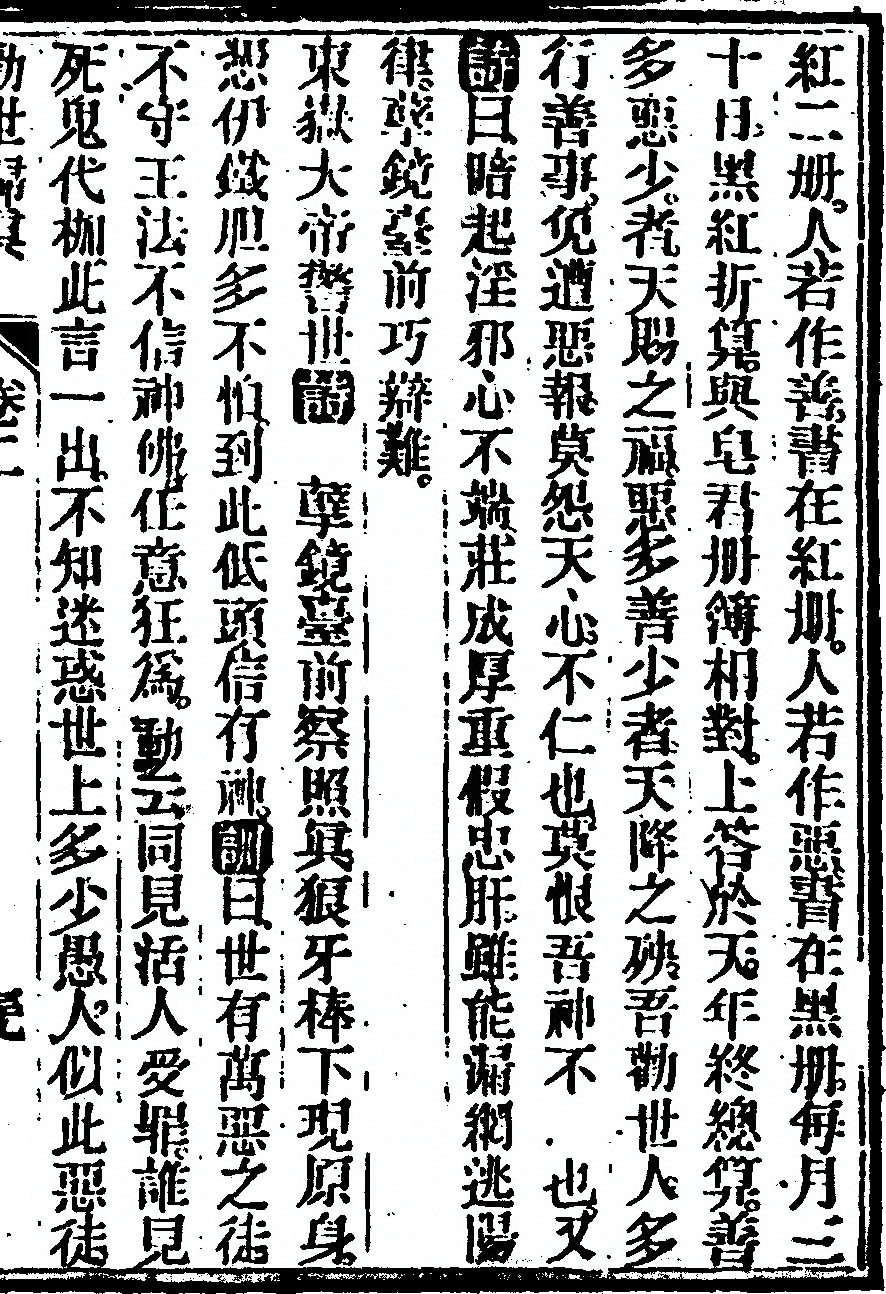 紅二册。人若作善。書在紅册。人若作惡。書在黑册。每月三
十日。黑紅折算。與皂君册簿相對。上答於天。年終總算。善
多惡少。者。天賜之福。惡多善少者。天降之殃。吾勸世人。多
行善事。免遭惡報。莫怨天心。不仁也。莫恨吾神不 也。又
詩曰。暗起淫邪心不端。莊成厚重假忠肝。雖能漏網逃陽
律。孽鏡臺前巧辯難。
東嶽大帝警世詩 孽鏡臺前察照真。狼牙棒下現原身。
恕伊鐵胆多不怕。到此低頭信有神。訓曰。世有萬惡之徒。
不守王法。不信神佛。任意狂為。動云同見活人受罪。誰見
死鬼代枷。此言一出。不知迷惑世上多少愚人。似此惡徒。
勸世歸真 卷二